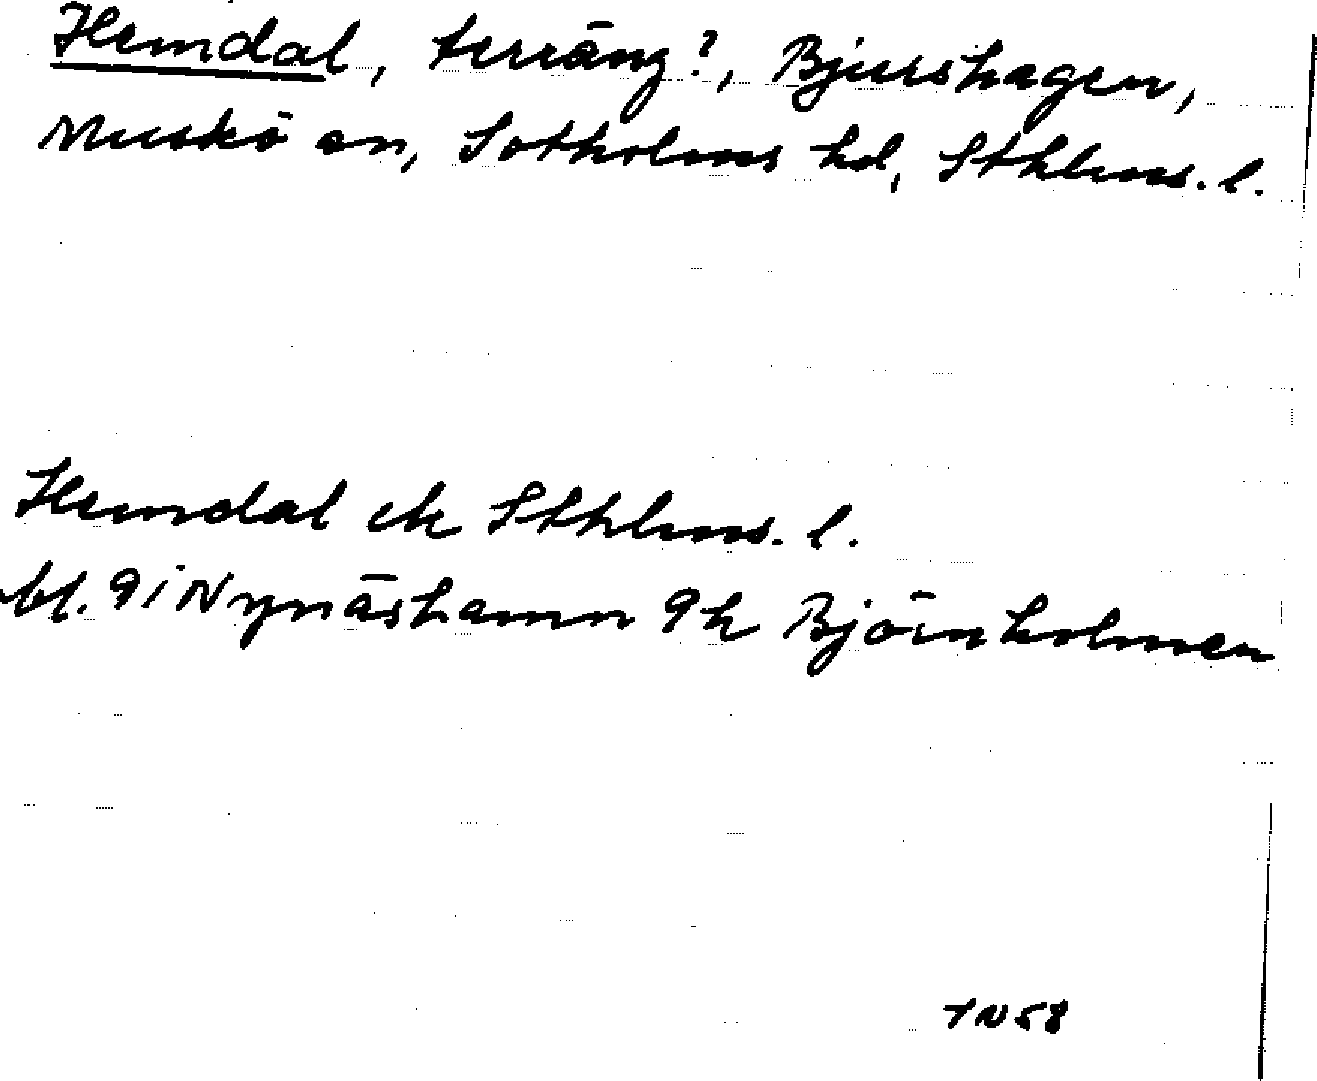 Hemdal, terräng?, Bjurshagen,
Muskö sn, Sotholms hd, Sthlms. l.
Hemdal ek Sthlms. l.
bl. 9i Nynäshamn 9h Björnholmen
TN58